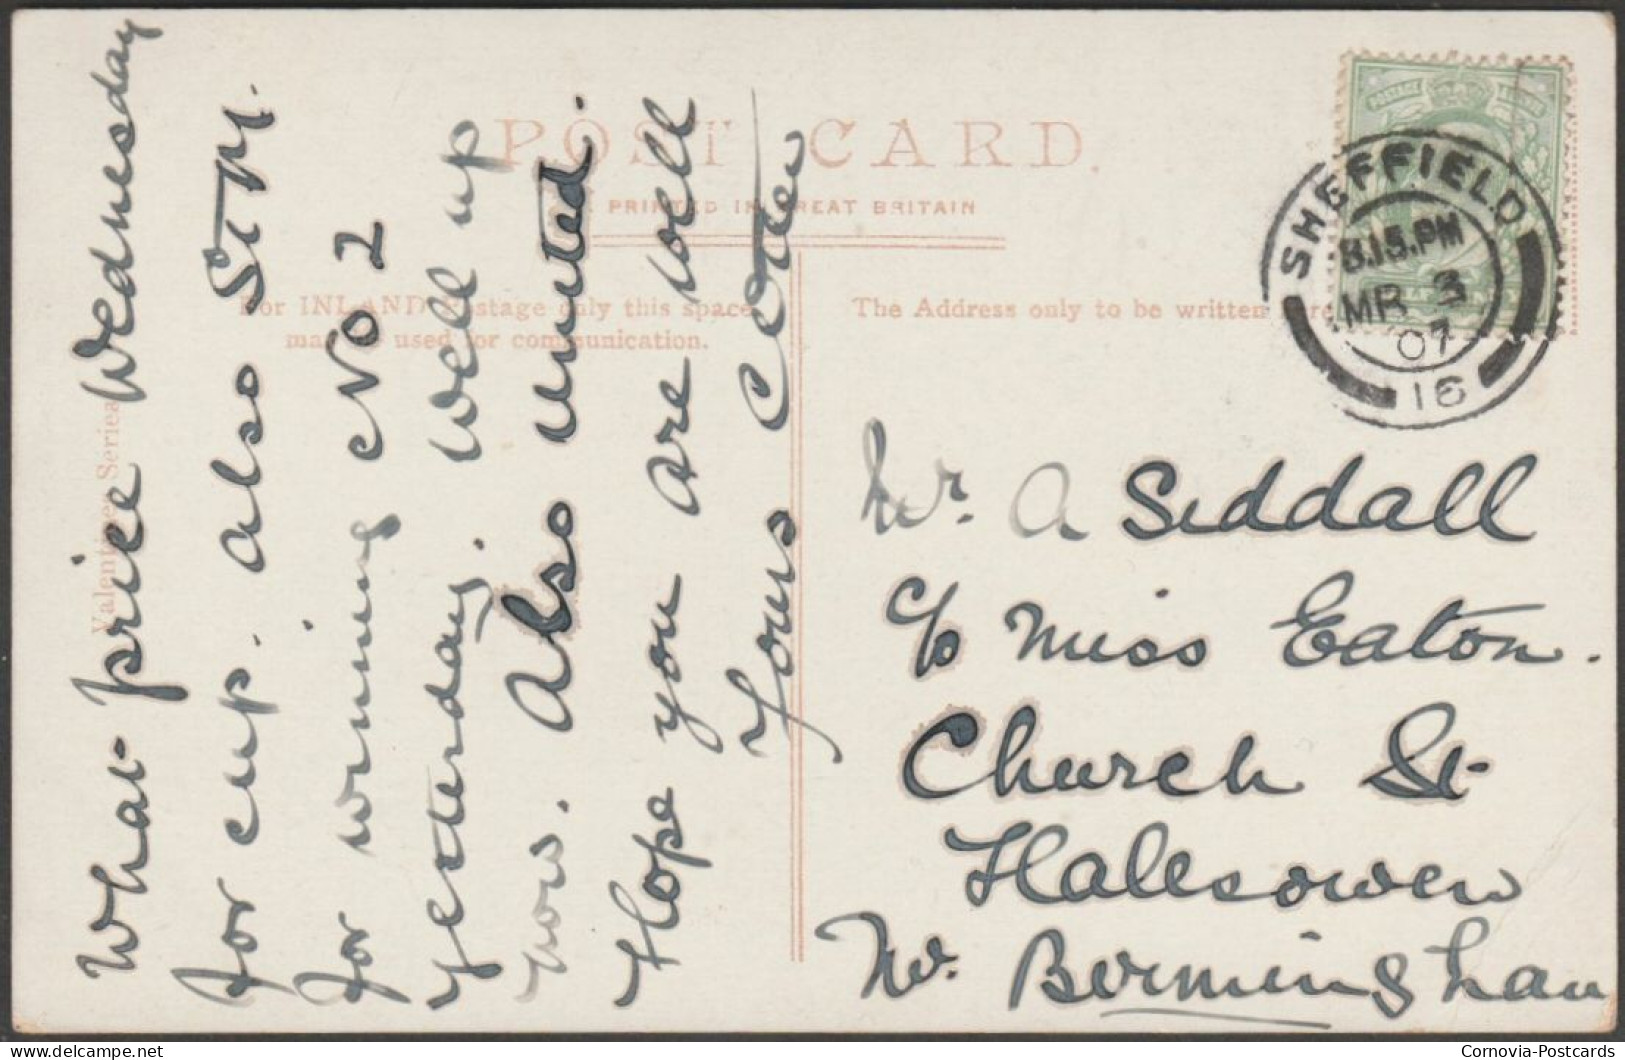 POST CARD.
PRINTED IN GREAT BRITAIN
For INLAND Postage only this space
may be used for communication.
The Address only to be written here
Valentines Series
SHEFFIELD
8.15.PM
MR 3
07
16
What price Wednesday
for cup. also St M.
for winning No 2
yesterday. Well up
now. Also united.
Hope you are well
Yours
Mr. A Siddall
c/o Miss Eaton.
Church St
Halesowen
Nr. Birmingham
Cornovia-Postcards